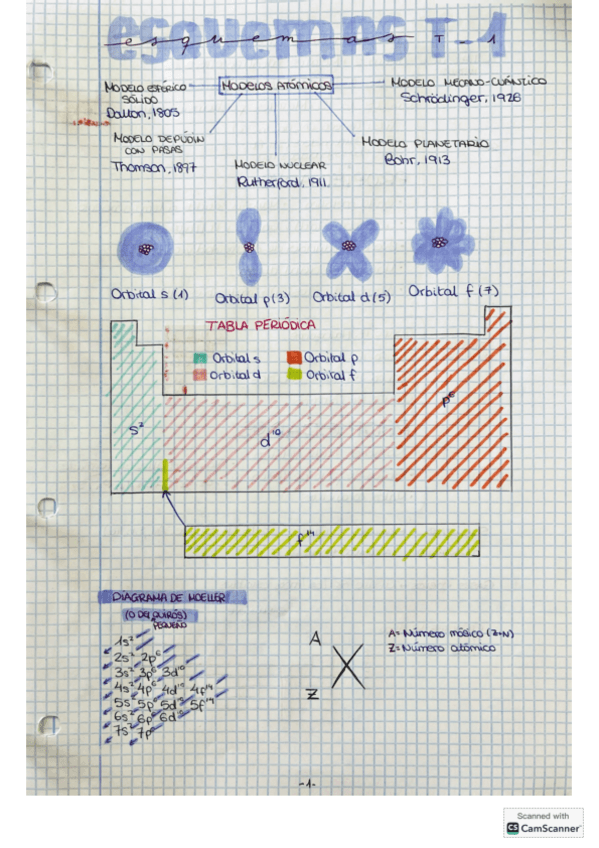 esquemas T-1
MODELOS ATÓMICOS
MODELO ESFÉRICO
SÓLIDO
Dalton, 1805
MODELO DE PUDIN
CON PASAS
Thomson, 1897
MODELO NUCLEAR
Rutherford, 1911
MODELO PLANETARIO
Bohr, 1913
MODELO MECANO-CUÁNTICO
Schrödinger, 1926
Orbital s (1)
Orbital p (3)
Orbital d (5)
Orbital f (7)
TABLA PERIÓDICA
Orbital s
Orbital p
Orbital d
Orbital f
s²
d¹⁰
p⁶
f¹⁴
DIAGRAMA DE MOELLER
(O DEL QUIRÓS)
PEQUEÑO
1s²
2s² 2p⁶
3s² 3p⁶ 3d¹⁰
4s² 4p⁶ 4d¹⁰ 4f¹⁴
5s² 5p⁶ 5d¹⁰ 5f¹⁴
6s² 6p⁶ 6d¹⁰
7s² 7p⁶
A
X
Z
A= Número másico (Z+N)
Z= Número atómico
-1-
Scanned with
CS CamScanner